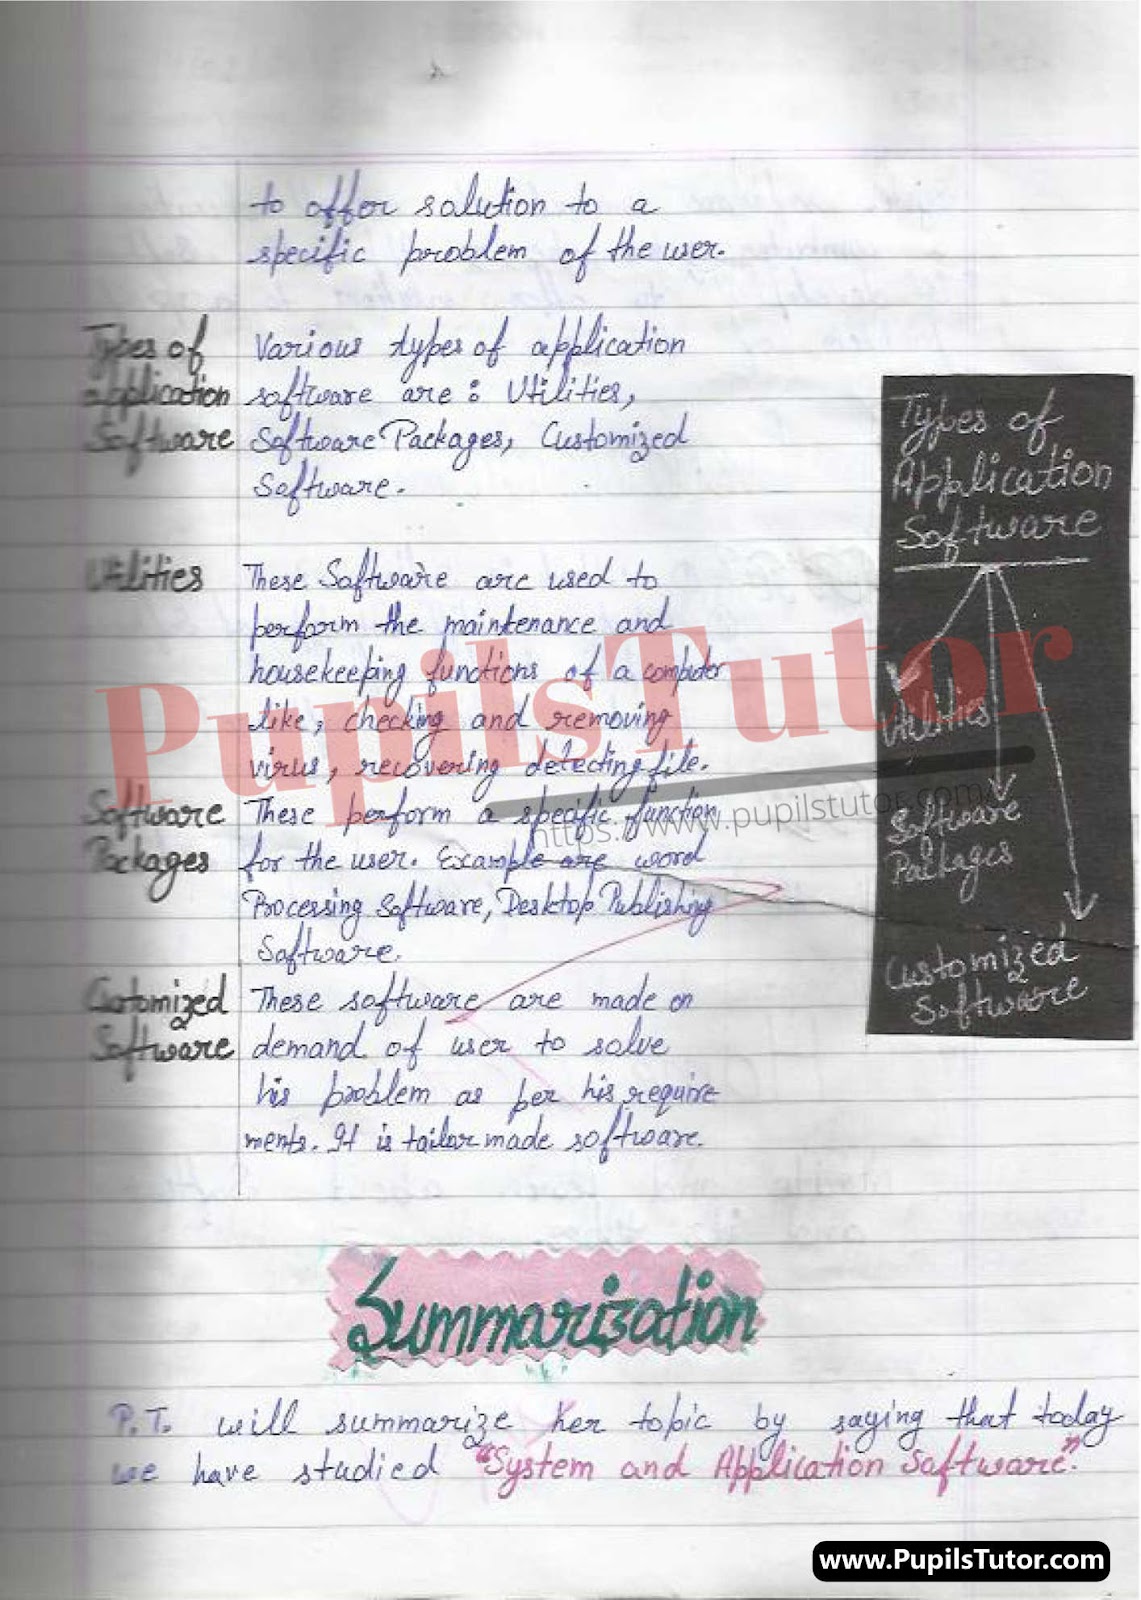 to offer solution to a
specific problem of the user.
Types of
application
Software
Various types of application
software are : Utilities,
Software Packages, Customized
Software.
Utilities
These Software are used to
perform the maintenance and
housekeeping functions of a computer
like, checking and removing
virus, recovering detecting file.
Software
Packages
These perform a specific function
for the user. Example are word
Processing Software, Desktop Publishing
Software.
Customized
Software
These software are made on
demand of user to solve
his problem as per his require
ments. It is tailor made software.
Types of
Application
Software
Utilities
Software
Packages
Customized
Software
PupilsTutor
https://www.pupilstutor.com
Summarization
P.T. will summarize her topic by saying that today
we have studied "System and Application Software".
www.PupilsTutor.com